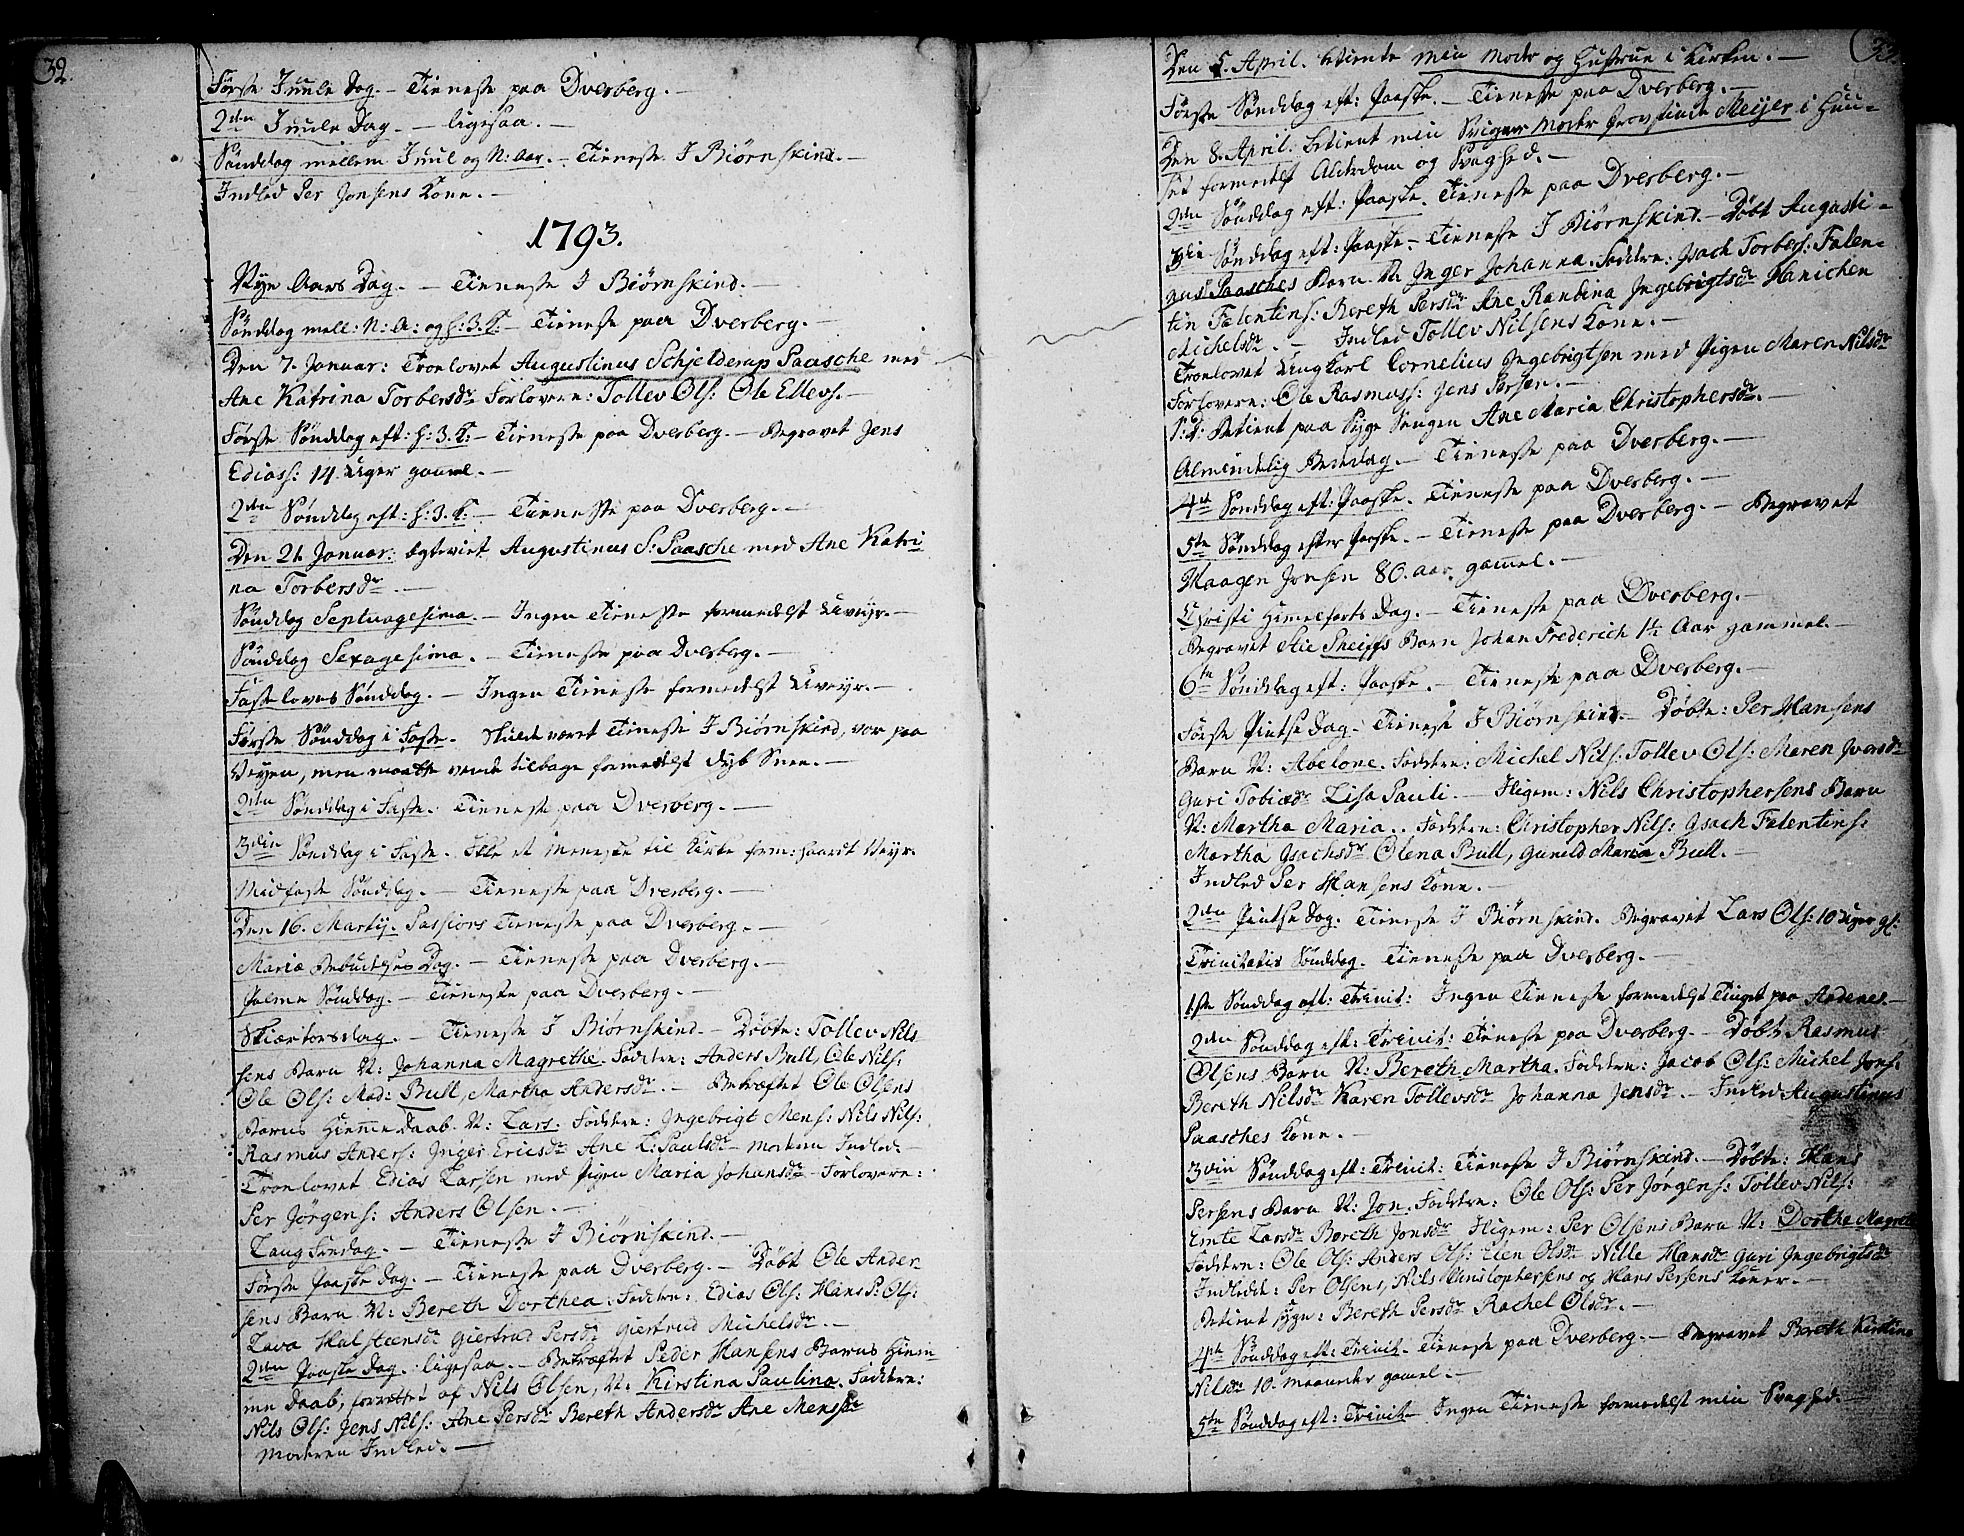 32.
Første Juule Dag. - Tieneste paa Dverberg. -
2den Juule Dag. - ligesaa. -
Sønddag mellem Juul og N: Aar. - Tieneste J Biørnskind. -
Indled Per Jonsens Kone. -
1793.
Nyn Aars Dag. - Tieneste J Biørnskind. -
Sønddag mell: N: A: og h: 3. K: - Tieneste paa Dverberg. -
Den 7. Januar: Troelovet Augustinus Schjelderup Paasche med
Ane Katrina Torbersdr Forlovere: Tollev Ols: Ole Ellevs. -
Første Sønddag eft: h: 3. K: - Tieneste paa Dverberg - Begravet Jens
Ediass: 14. Uger gamel. -
2den Sønddag eft: h: 3. K: - Tieneste paa Dverberg. -
Den 21. Januar: Egteviet Augustinus S: Paasche med Ane Katri-
na Torbersdr. -
Sønddag Septuagesima. - Ingen Tieneste formedelst Uveyr. -
Sønddag Sexagesima. - Tieneste paa Dverberg. -
Fastelavns Sønddag. - Ingen Tieneste formedelst Uveyr. -
Første Sønddag i Faste. Skulde været Tieneste J Biørnskind, var paa
Veyen, men maatte vende tilbage formedelst dyb Snee. -
2den Sønddag i Faste. Tieneste paa Dverberg. -
3die Sønddag i Faste. Ikke et Meneske til Kirke form: haardt Veyr.
Midfaste Sønddag. - Tieneste paa Dverberg. -
Den 16. Martij. Passions Tieneste paa Dverberg. -
Mariæ Bebudelses Dag. - Tieneste paa Dverberg. -
Palme Sønddag. - Tieneste paa Dverberg. -
Skiærtorsdag. - Tieneste J Biørnskind. - Døbte: Tollev Nils
sens Barn N: Johanna Magrethe. Faddere: Anders Bull, Ole Nils:
Ole Ols: Mad: Bull, Martha Andersdr. - Bekræftet Ole Olsens
Barns Hiemme Daab. N: Lars. Faddere: Ingebrigt Mens: Nils Nils:
Rasmus Anders: Inger Ericsdr Ane K: Paulsdr - Moderen Indled. -
Troelovet Edias Larsen med Pigen Maria Johansdr - Forlovere:
Per Jørgens: Anders Olsen. -
Lang Fredag. - Tieneste J Biørnskind. -
Første Paaske Dag. - Tieneste paa Dverberg. - Døbt Ole Ander
sens Barn N: Bereth Dorthea. Faddere: Edias Ols: Hans P: Ols:
Lava Halsteensdr Giertrud Persdr Giertrud Michelsdr. -
2den Paaske Dag. ligesaa. - Bekræftet Peder Hansens Barns Hiem-
me Daab, forrettet af Nils Olsen, N: Kirstina Paulina. Faddere:
Nils Ols: Jens Nils: Ane Persdr Bereth Andersdr Ane Mensdr
Moderen Indled. -
33.
Den 5. April. betiente min Moder og Hustrue i Kirken. -
Første Sønddag eft: Paaske. - Tieneste paa Dverberg. -
Den 8. April: betient min Sviger Moder Provstinde Meijer i Huu-
set formedelst Alderdom og Svaghed. -
2den Sønddag eft: Paaske. Tieneste paa Dverberg. -
3die Sønddag eft: Paaske - Tieneste J Biørnskind. - Døbt Augusti-
nus Paasches Barn N: Inger Johanna. Faddere: Isach Torbers: Falen-
tin Falentins: Bereth Persdr Ane Randina Ingebrigtsdr Hanichen
Michelsdr. - Indled Tollev Nilsens Kone. -
Troelovet Ungkarl Cornelius Ingebrigtsen med Pigen Maren Nilsdr
Forlovere: Ole Rasmuss: Jens Persen. -
S: D: Betient paa Syge Sengen Ane Maria Christophersdr. -
Almindelig Bededag. - Tieneste paa Dverberg. -
4de Sønddag eft: Paaske. Tieneste paa Dverberg. -
5te Sønddag efter Paaske. - Tieneste paa Dverberg. - Begravet
Haagen Jonsen 80. aar gamel. -
Christi Himmelfarts Dag. - Tieneste paa Dverberg. -
Begravet Barn Johan Frederich 1½ Aar gammel. -
6te Sønddag eft: Paaske. - Tieneste paa Dverberg. -
Første Pintse Dag. Tieneste J Biørnskind. - Døbte: Per Hansens
Barn N: Abelone. Faddere: Michel Nils: Tollev Ols: Maren Iversdr
Guri Tobiædr Lisa Pauli. - Iligem: Nils Christophersens Barn
N: Martha Maria. Faddere: Christopher Nils: Isach Falentins:
Martha Isachsdr Olena Bull, Gunild Maria Bull. -
Indled Per Hansens Kone. -
2den Pintse Dag. Tieneste J Biørnskind. Begravet Lars Ols: 10 Uger gl:
Trinitatis Sønddag. Tieneste paa Dverberg. -
1ste Sønddag eft: Trinit: Ingen Tieneste formedelst Tinget paa Andenes. -
2den Sønddag eft: Trinit: Tieneste paa Dverberg - Døbt Rasmus
Olsens Barn N: Bereth Martha. Faddere: Jacob Ols: Michel Jons:
Bereth Nilsdr Karen Tollevsdr Johanna Jensdr. - Indled Augustinus
Paasches Kone. -
3die Sønddag eft: Trinit: Tieneste J Biørnskind. - Døbte: Hans
Persens Barn N: Jon. Faddere: Ole Ols: Per Jørgens: Tollev Nils:
Larsdr Bereth Jonsdr Iligem: Per Olsens Barn N: Dorthe Magreth
Faddere: Ole Ols: Anders Ols: Elen Olsdr Nille Hansdr Guri Ingebrigtsdr
Indledt: Per Olsens, Nils Christophersens og Hans Persens Koner. -
Betient syge: Bereth Persdr Rachel Olsdr. -
4de Sønddag eft: Trinit. Tieneste paa Dverberg. - Begravet Bereth Kirstina
Nilsdr 10. Maaneder gamel. -
5te Sønddag eft: Trinit - Ingen Tieneste formedelst min Svaghed. -